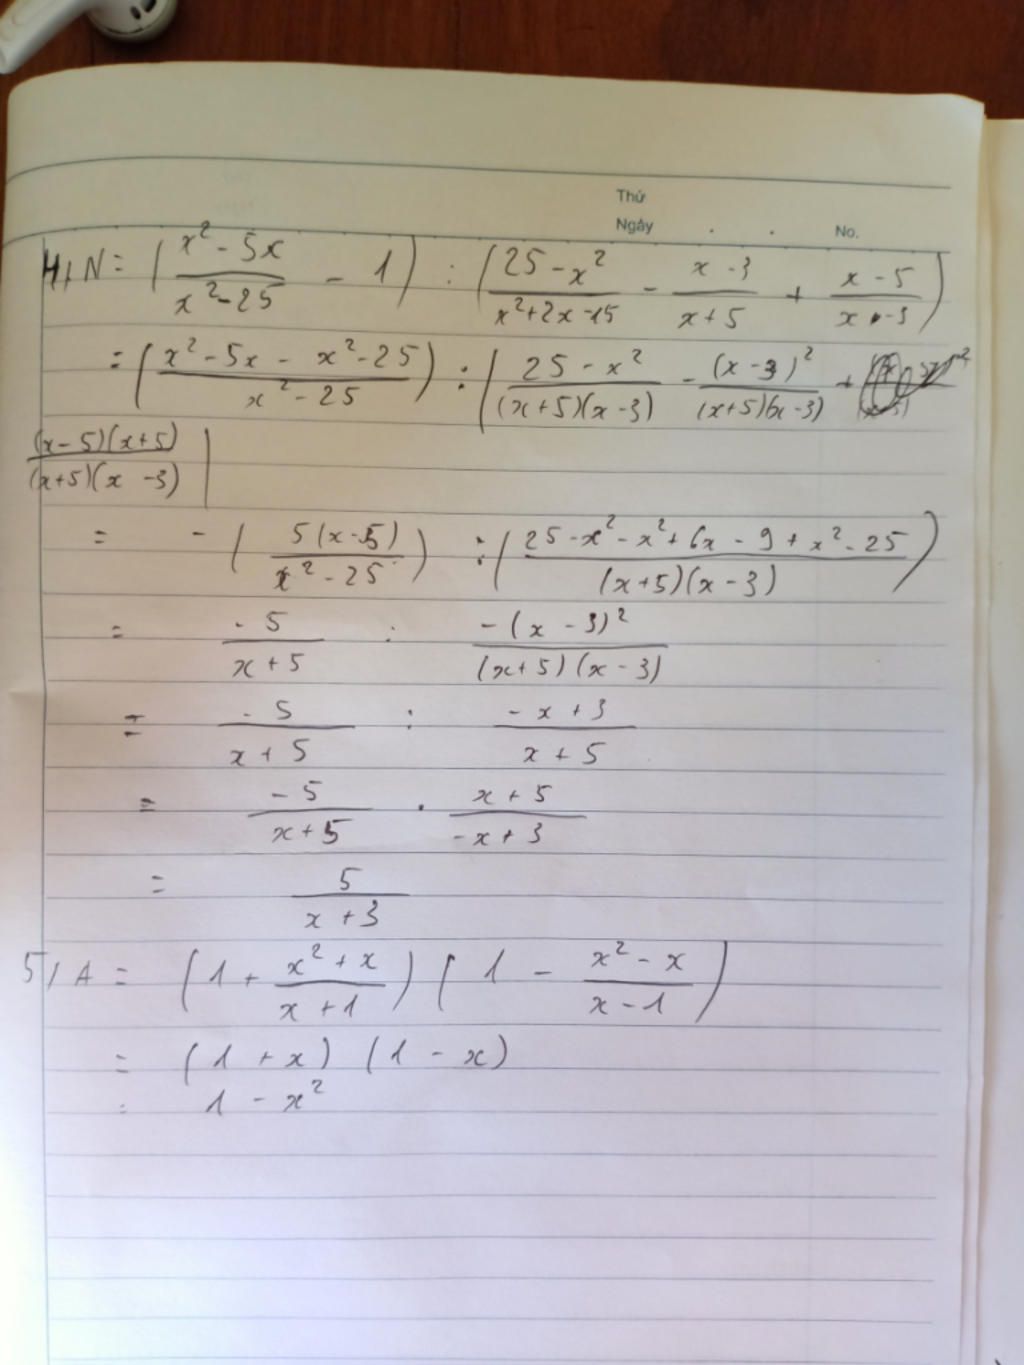 Thứ
Ngày . . No.
4, N = ( (x² - 5x)/(x² - 25) - 1 ) : ( (25 - x²)/(x² + 2x - 15) - (x - 3)/(x + 5) + (x - 5)/(x - 3) )
= ( (x² - 5x - x² - 25)/(x² - 25) ) : ( (25 - x²)/((x+5)(x-3)) - (x - 3)²/((x+5)(x-3)) +
((x-5)(x+5))/((x+5)(x-3)) )
= - ( 5(x-5)/(x² - 25) ) : ( (25 - x² - x² + 6x - 9 + x² - 25)/((x+5)(x-3)) )
= -5/(x+5) : -(x-3)²/((x+5)(x-3))
= -5/(x+5) : (-x+3)/(x+5)
= -5/(x+5) . (x+5)/(-x+3)
= 5/(x+3)
5, A = ( 1 + (x² + x)/(x + 1) ) ( 1 - (x² - x)/(x - 1) )
= (1 + x) (1 - x)
= 1 - x²